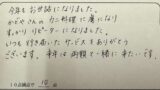 今年もお世話になりました。
かどやさんの カニ料理に 魔になり
すっかり リピーターになりました。
いつも 行き届いた サービスを ありがとう
ございます。来年は 両親と一緒に 来たいです。
10点満点で 10 点